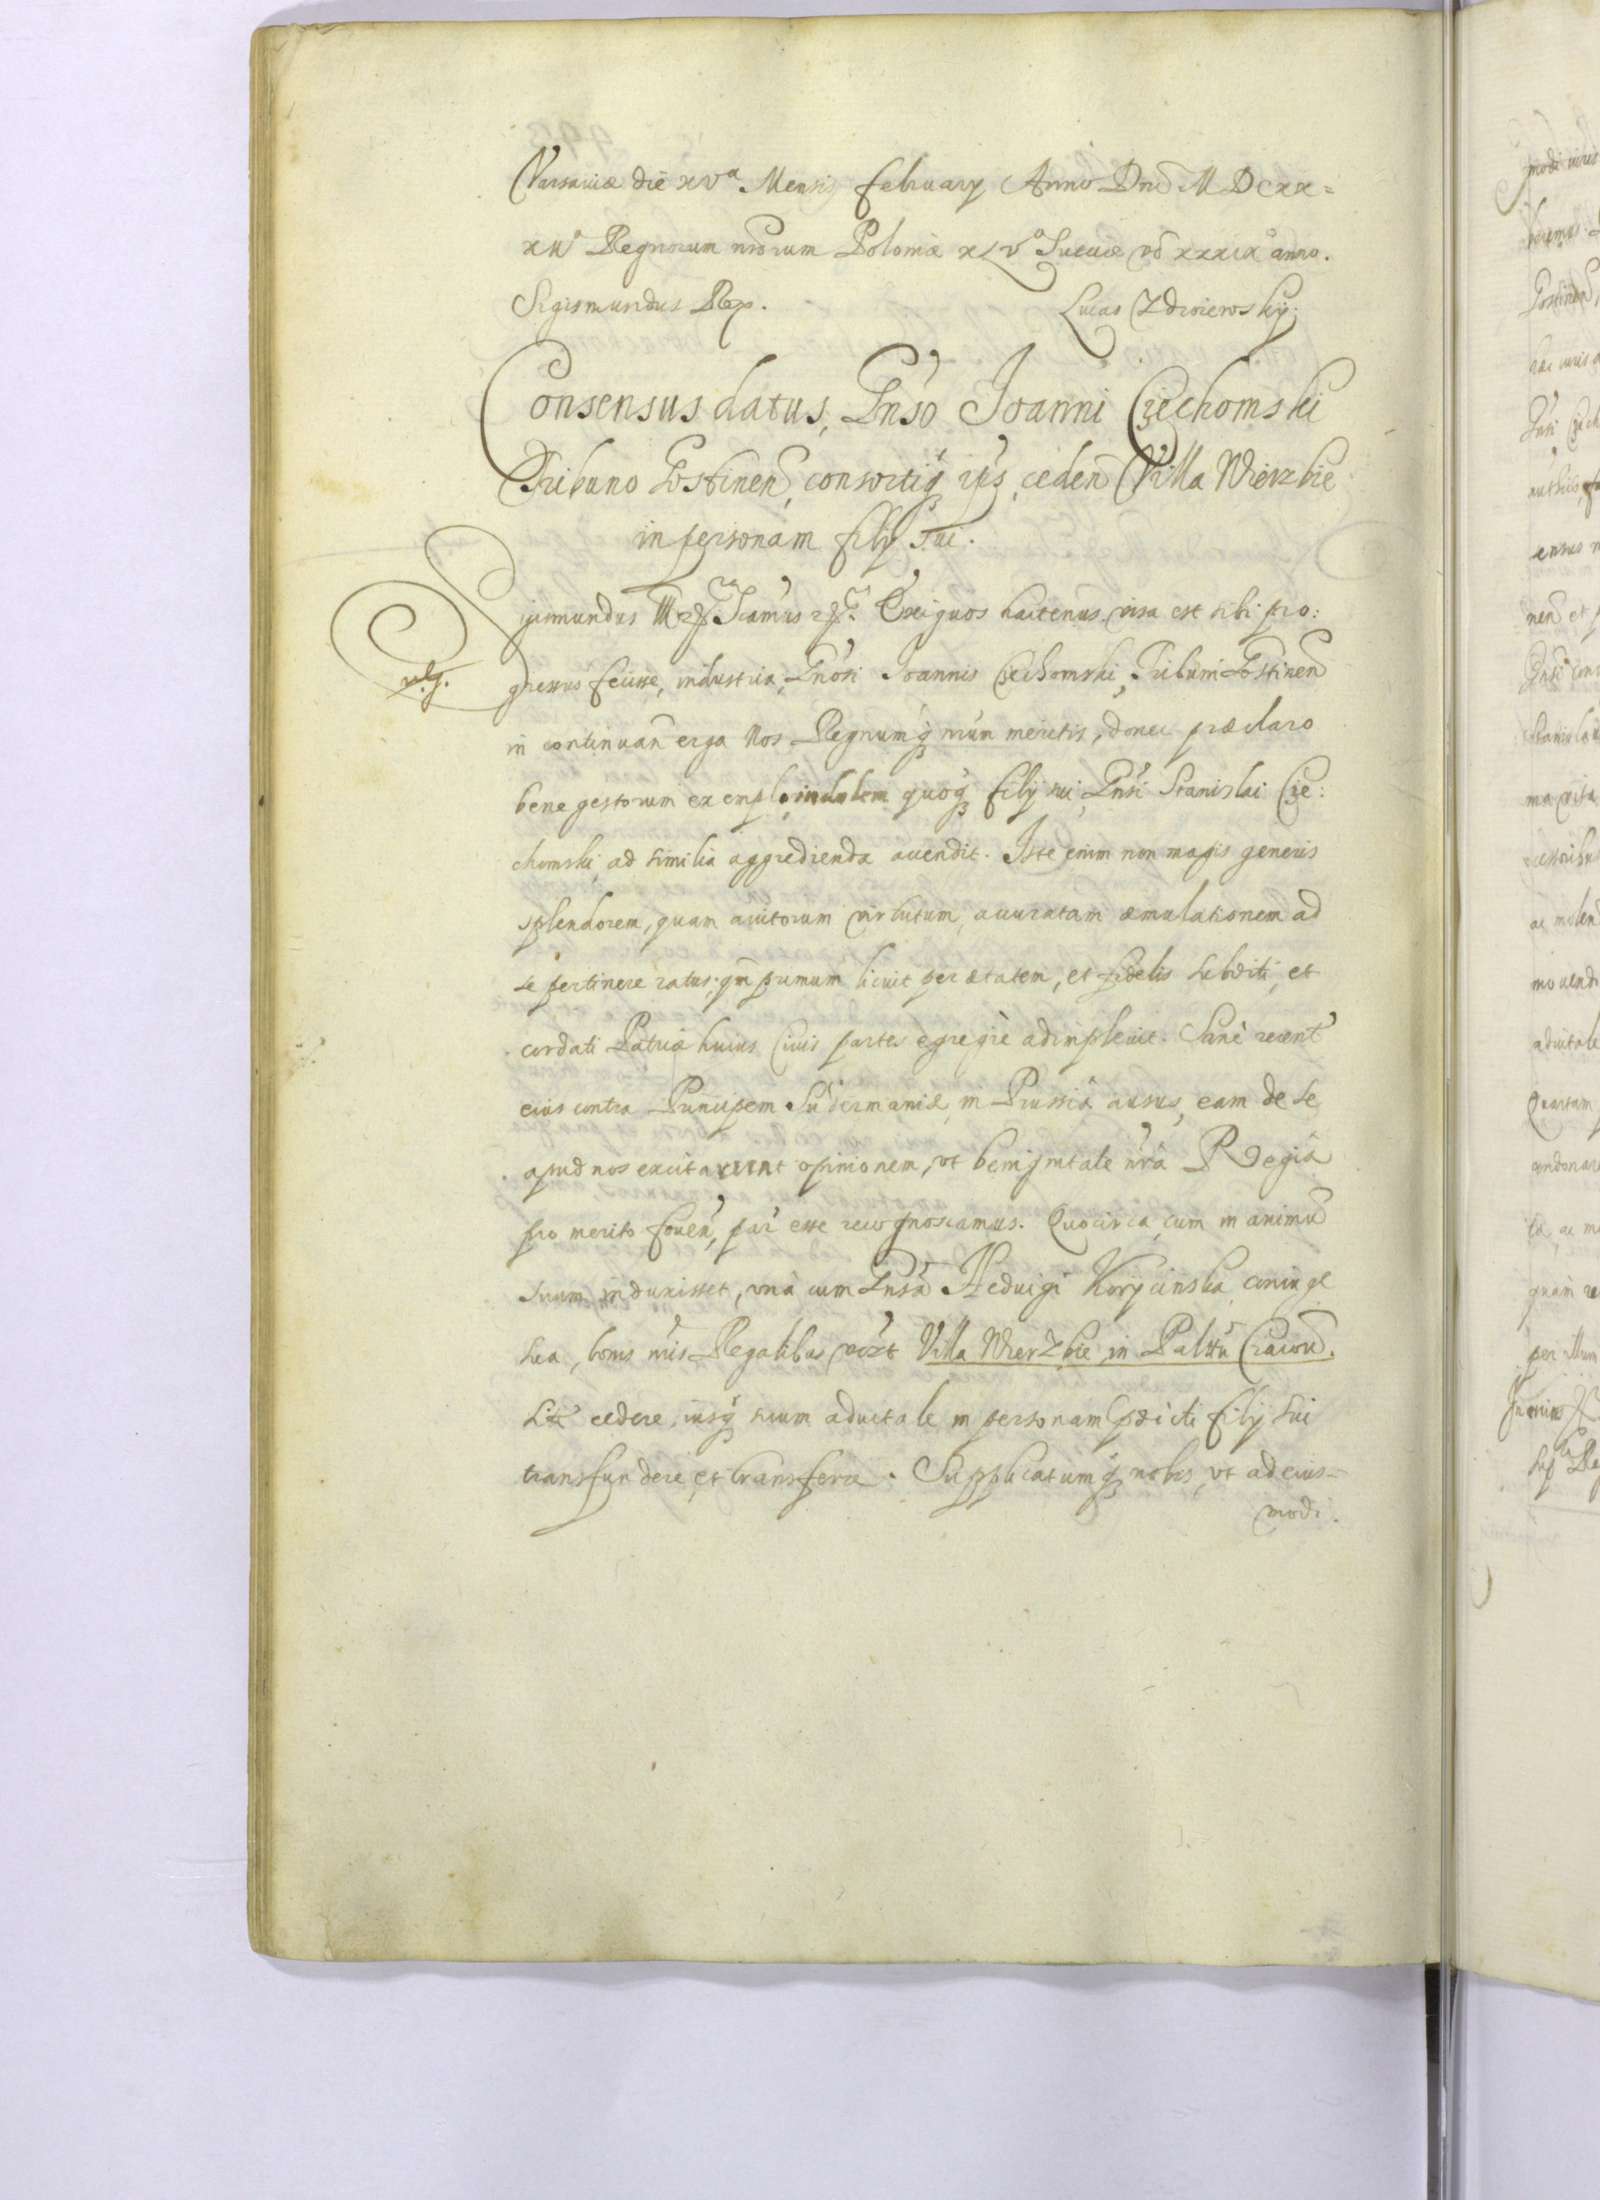 Varsaviæ die xvª Mensis february Anno Dni M DCxx=
xIIº Regnorum nrorum Poloniæ xLvº Sueciæ vo xxxixº anno.
Sigismundus Rex. Lucas Zdroiewsky.
Consensus datus, Gnso Joanni Ciechomski
Tribuno Gostinen, consortiq eius, ceden Villa Wierzbie
in personam filij sui.
Sigismundus III Exiguos hactenus visa est sibi pro:
vlg. gressus fecisse, industria, Gnosi Joannis Ciechomski, Tribuni Gostinen
in continuan erga Nos Regnumq nrum meritis, donec præclaro
bene gestorum exemplo, indolem quoq filij sui Gnsi Stanislai Cie:
chomski, ad similia aggredienda accendit. Iste enim non magis generis
splendorem, quam avitorum virtutum, accuratam æmulationem ad
se pertinere ratus; qm primum licuit per ætatem, et fidelis subditi, et
cordati Patriæ huius Civis partes egregiè adimplevit. Sanè recent
eius contra Principem Sudermaniæ, in Prussia ausus, eam de se
apud nos excitarunt opinionem, vt benigntate nrâ Regiâ
pro merito foven, par esse recognoscamus. Quocirca, cum in animu
suum induxisset, vnà cum Gnsa Heduigi Korycinska coniuge
sua, bonis nris Regalibus Villa Wierzbie in Palttu Cracou.
sitis cedere, iusq suum aduitale in personam pdicti filij sui
transfundere et transferre. Supplicatumq nobis, vt ad eius=
modi.